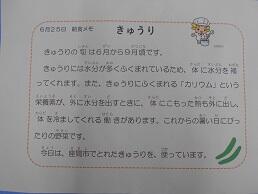 6月25日 給食メモ
きゅうり
きゅうりの旬は6月から9月頃です。
きゅうりには水分が多くふくまれているため、体に水分を補
ってくれます。また、きゅうりにふくまれる「カリウム」という
栄養素が、外に水分を出すときに、体にこもった熱も外に出し、
体を冷ましてくれる働きがあります。これからの暑い日にぴっ
たりの野菜です。
今日は、座間市でとれたきゅうりを、使っています。